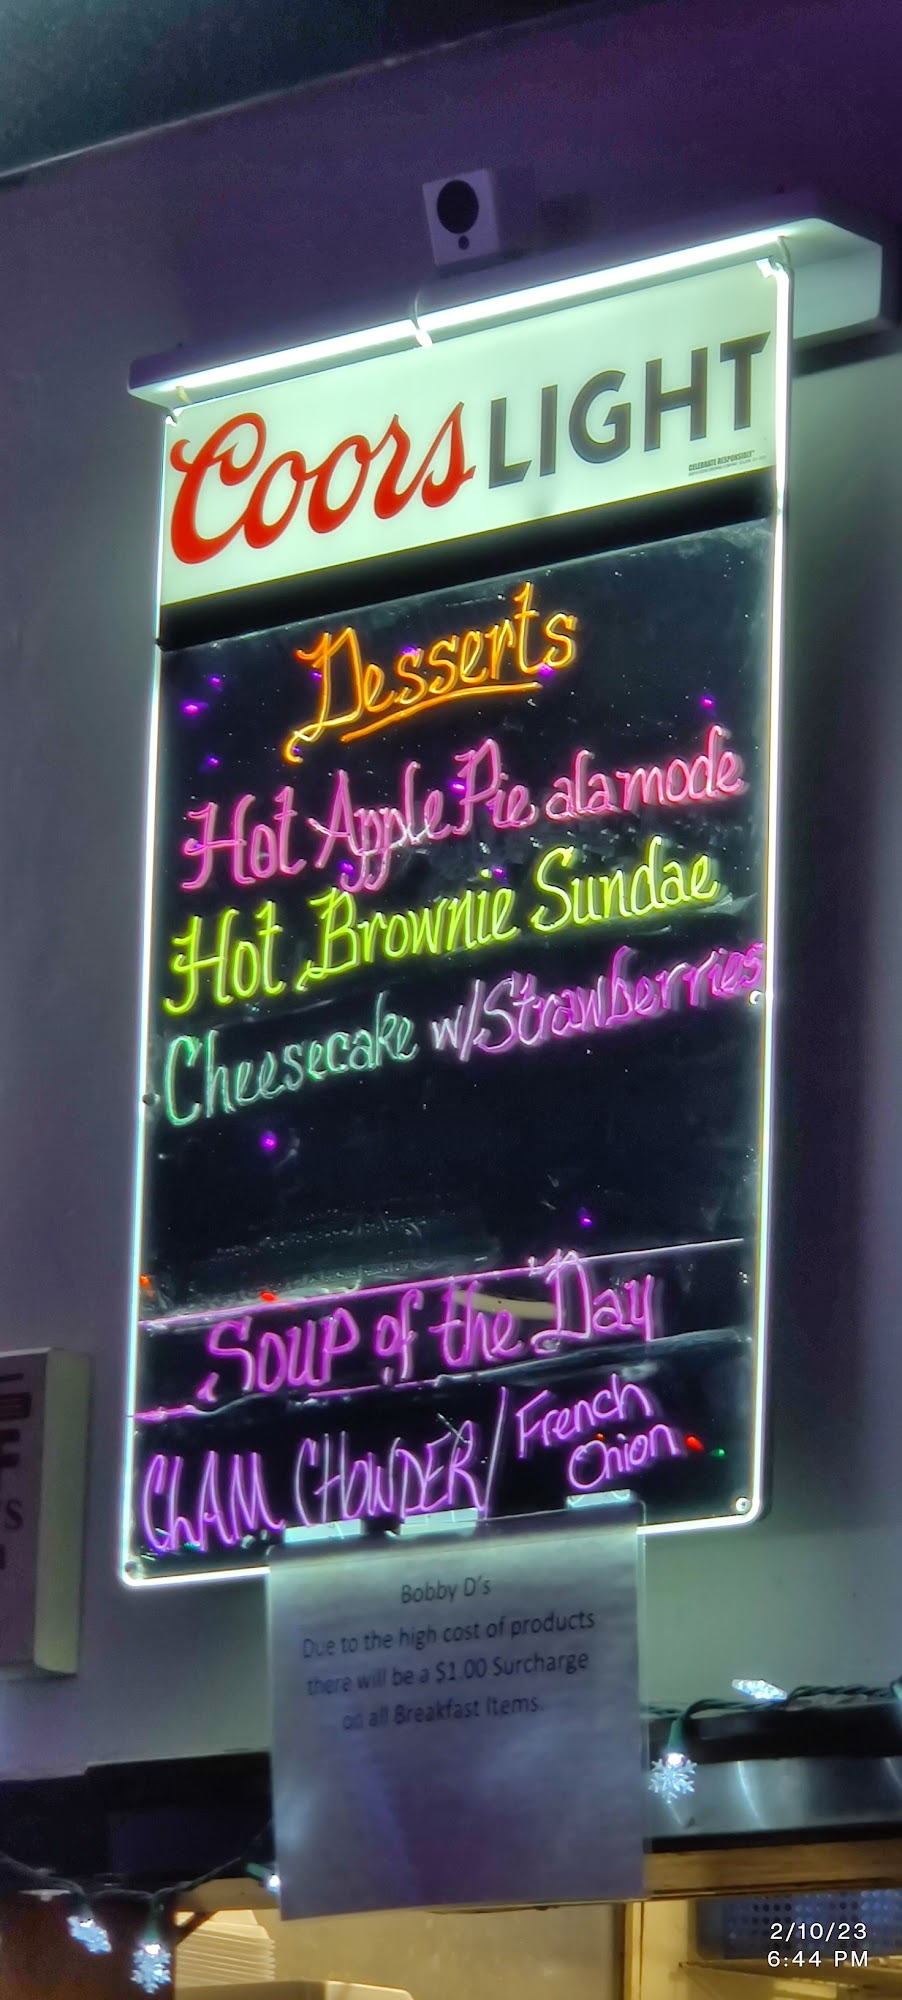 Coors LIGHT
CELEBRATE RESPONSIBLY
Desserts
Hot Apple Pie alamode
Hot Brownie Sundae
Cheesecake w/Strawberries
Soup of the Day
CLAM CHOWDER/French
Onion
Bobby D's
Due to the high cost of products
there will be a $1.00 Surcharge
on all Breakfast Items.
2/10/23
6:44 PM